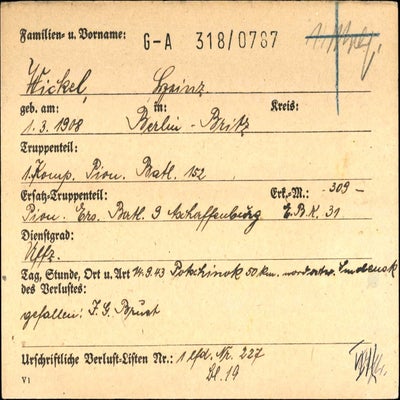 Familien- u. Vorname: G-A 318/0787
Wickel, Heinz
geb. am: in: Kreis:
1.3.1908 Berlin-Britz
Truppenteil:
1. Komp. Pion. Batl. 152
Ersatz-Truppenteil: Erk.-M.: -309-
Pion. Ers. Batl. 9 Aschaffenburg E.B.K. 31
Dienstgrad:
Uffz.
Tag, Stunde, Ort u. Art 14.9.43 Potschinok 50 km. nordostw. Smolensk
des Verlustes:
gefallen: I.G. Brust
Urschriftliche Verlust-Listen Nr.: 1 lfd. Nr. 227
Bl. 19
V1